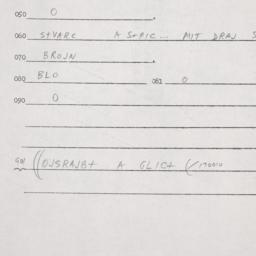 050 O
060 STVARC A STRIC... MIT DRAJ S
070 BROJN
080 BLO 081 O
090 O
A GLICT